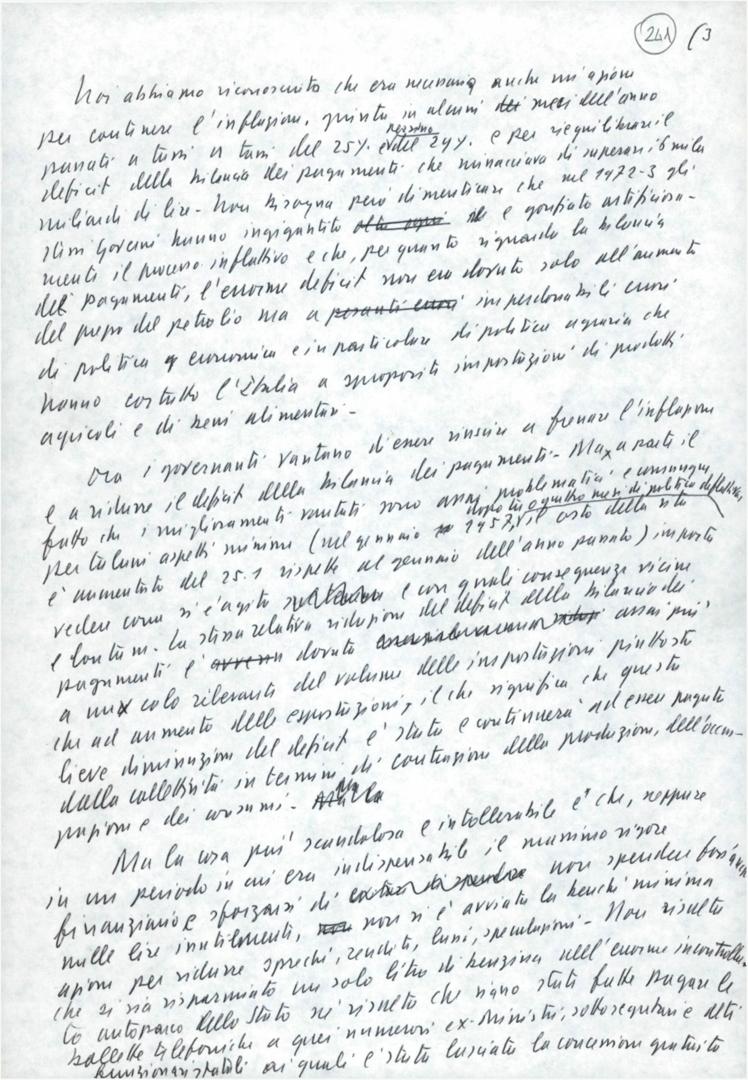 241 (3
Noi abbiamo riconosciuto che era necessaria anche un'azione
per contenere l'inflazione, giunta in alcuni mesi dell'anno
passato a tassi del 25% e persino del 24%. e per riequilibrare il
deficit della bilancia dei pagamenti che minacciava di superare i 6 mila
miliardi di lire - Non bisogna però dimenticare che nel 1972-3 gli
stessi governi hanno ingigantito e gonfiato artificiosa-
mente il processo inflattivo e che, per quanto riguarda la bilancia
dei pagamenti, l'enorme deficit non era dovuto solo all'aumento
del prezzo del petrolio ma a imperdonabili errori
di politica economica e in particolare di politica agraria che
hanno costretto l'Italia a spropositi importazioni di prodotti
agricoli e di beni alimentari -
Ora i governanti vantano d'essere riusciti a frenare l'inflazione
e a ridurre il deficit della bilancia dei pagamenti - Ma, a parte il
fatto che i miglioramenti vantati sono assai problematici e comunque
per taluni aspetti minimi (nel gennaio 1975, dopo tre o quattro mesi di politica deflattiva, il costo della vita
è aumentato del 25.1 rispetto al gennaio dell'anno passato) importa
vedere come si è agito e con quali conseguenze vicine
e lontane. La stessa relativa riduzione del deficit della bilancia dei
pagamenti è dovuta assai più
a un calo rilevante del volume delle importazioni piuttosto
che ad aumento delle esportazioni, il che significa che questa
lieve diminuzione del deficit è stata e continuerà ad essere pagata
dalla collettività in termini di contrazione della produzione, dell'occu-
pazione e dei consumi -
Ma la cosa più scandalosa e intollerabile è che, neppure
in un periodo in cui era indispensabile il massimo rigore
finanziario e sforzarsi di non spendere foss'anche
mille lire inutilmente, non si è avviata la benché minima
azione per ridurre sprechi, rendite, lussi, speculazioni - Non risulta
che si sia risparmiato un solo litro di benzina nell'enorme incontrolla-
to autoparco dello Stato né risulta che siano state fatte pagare le
bollette telefoniche a quei numerosi ex-Ministri, sottosegretari e alti
funzionari statali ai quali è stata lasciata la concessione gratuita